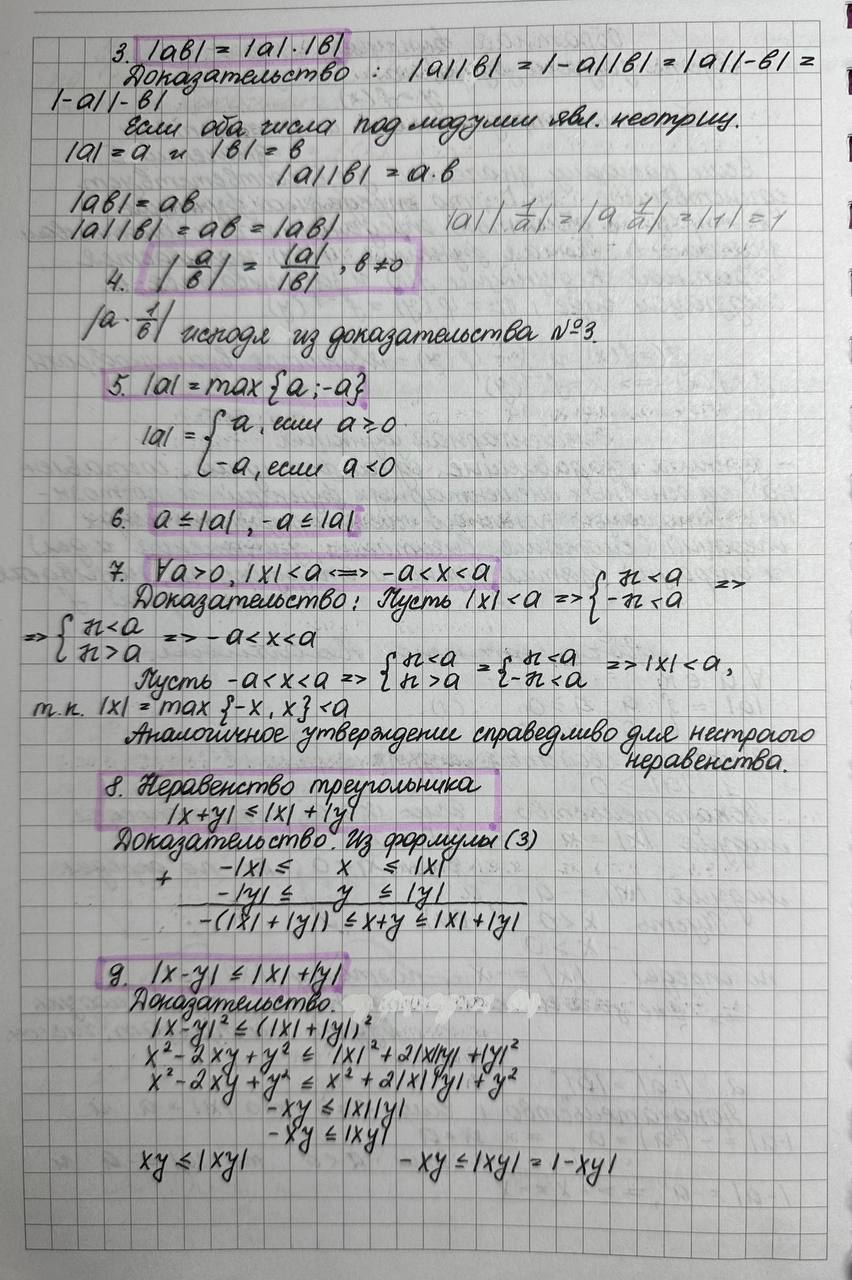 3. |ab| = |a|·|b|
Доказательство : |a||b| = |-a||b| = |a||-b| =
|-a||-b|
Если оба числа под модулем явл. неотриц.
|a| = a и |b| = b
|a||b| = a·b
|ab| = ab
|a||b| = ab = |ab|
|a||1/a| = |a 1/a| = |1| = 1
4. |a/b| = |a|/|b|, b≠0
|a · 1/b| исходя из доказательства №3.
5. |a| = max{a;-a}
|a| = { a, если a≥0
-a, если a<0
6. a ≤ |a|, -a ≤ |a|
7. ∀a>0, |x|<a <=> -a<x<a
Доказательство: Пусть |x|<a => { x<a =>
-x<a
=> { x<a => -a<x<a
x>a
Пусть -a<x<a => { x<a = { x<a => |x|<a,
x>a -x<a
т.к. |x| = max{-x, x}<a
Аналогичное утверждение справедливо для нестрогого
неравенства.
8. Неравенство треугольника
|x+y| ≤ |x| + |y|
Доказательство. Из формулы (3)
+ -|x| ≤ x ≤ |x|
-|y| ≤ y ≤ |y|
-(|x| + |y|) ≤ x+y ≤ |x| + |y|
9. |x-y| ≤ |x| + |y|
Доказательство.
|x-y|² ≤ (|x| + |y|)²
x² - 2xy + y² ≤ |x|² + 2|x||y| + |y|²
x² - 2xy + y² ≤ x² + 2|x||y| + y²
-xy ≤ |x||y|
-xy ≤ |xy|
xy ≤ |xy| -xy ≤ |xy| = |-xy|